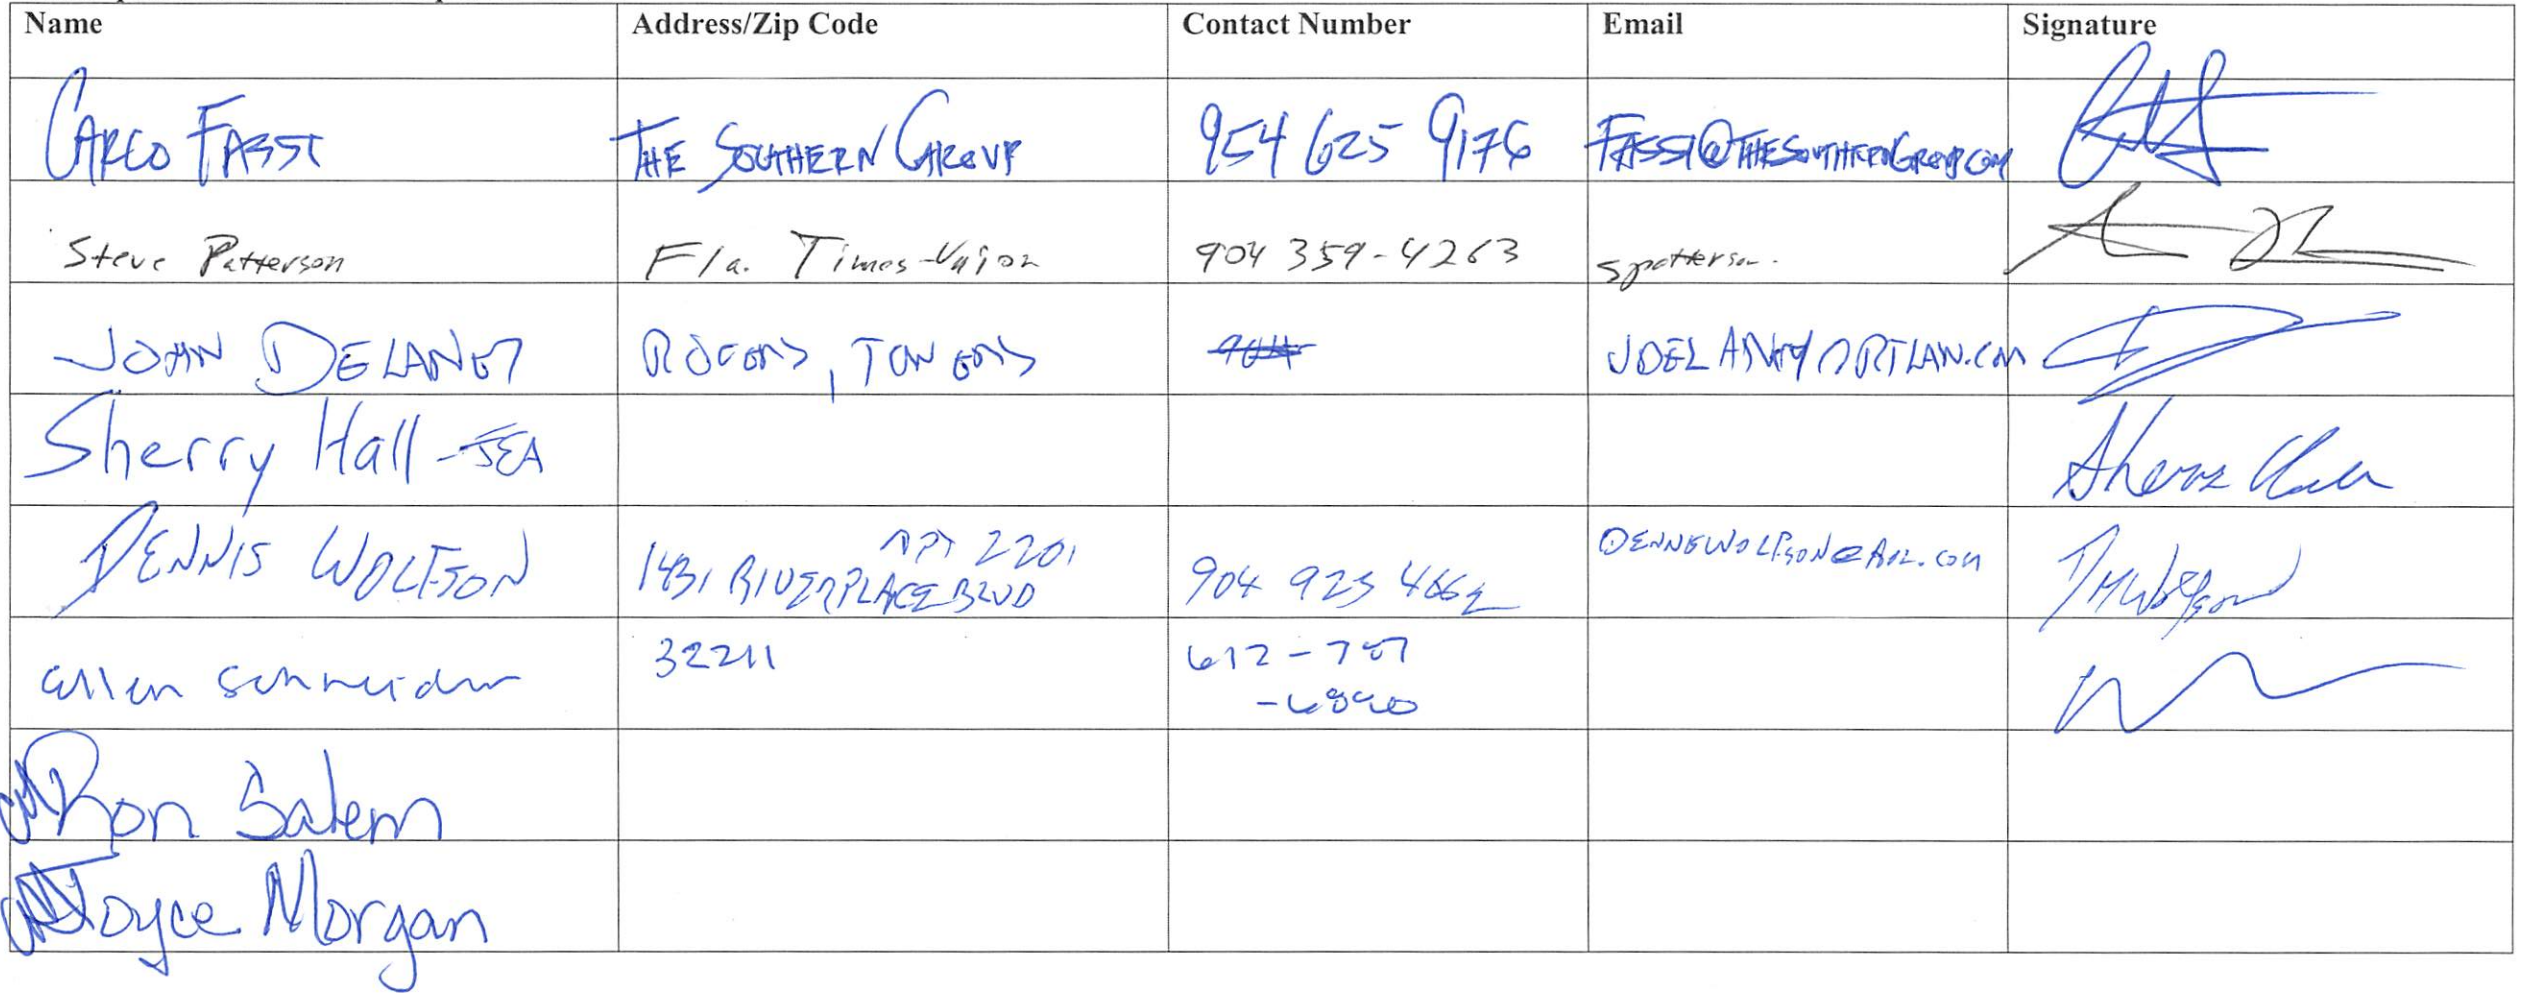 Name Address/Zip Code Contact Number Email Signature
CARLO FASSI THE SOUTHERN GROUP 954 625 9176 FASSI@THESOUTHERNGROUP.COM
Steve Patterson Fla. Times-Union 904 359-4263 spatterson.
JOHN DELANEY ROGERS, TOWERS 904 JDELANEY@RTLAW.COM
Sherry Hall - JEA Sherry Hall
APT 2201
DENNIS WOLFSON 1431 RIVERPLACE BLVD 904 923 4662 DENNEWOLFSON@AOL.COM DMWolfson
allen schneider 32211 612-787
-6890
Ron Salem
Joyce Morgan